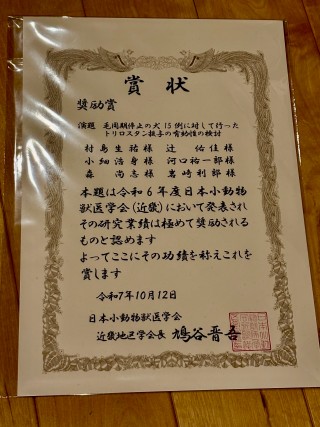 賞状
奨励賞
演題 毛周期停止の犬15例に対して行った
トリロスタン投与の有効性の検討
村島生緒様 辻佑佳様
小細浩身様 河口祐一郎様
森尚志様 岩崎利郎様
本題は令和6年度日本小動物
獣医学会(近畿)において発表され
その研究業績は極めて奨励される
ものと認めます
よってここにその功績を称えこれを
賞します
令和7年10月12日
日本小動物獣医学会
近畿地区学会長 鳩谷晋吾